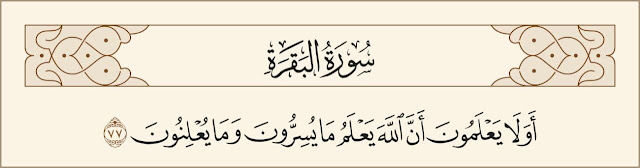 سُورَةُ البَقَرَةِ
أَوَلَا يَعْلَمُونَ أَنَّ ٱللَّهَ يَعْلَمُ مَا يُسِرُّونَ وَمَا يُعْلِنُونَ ٧٧